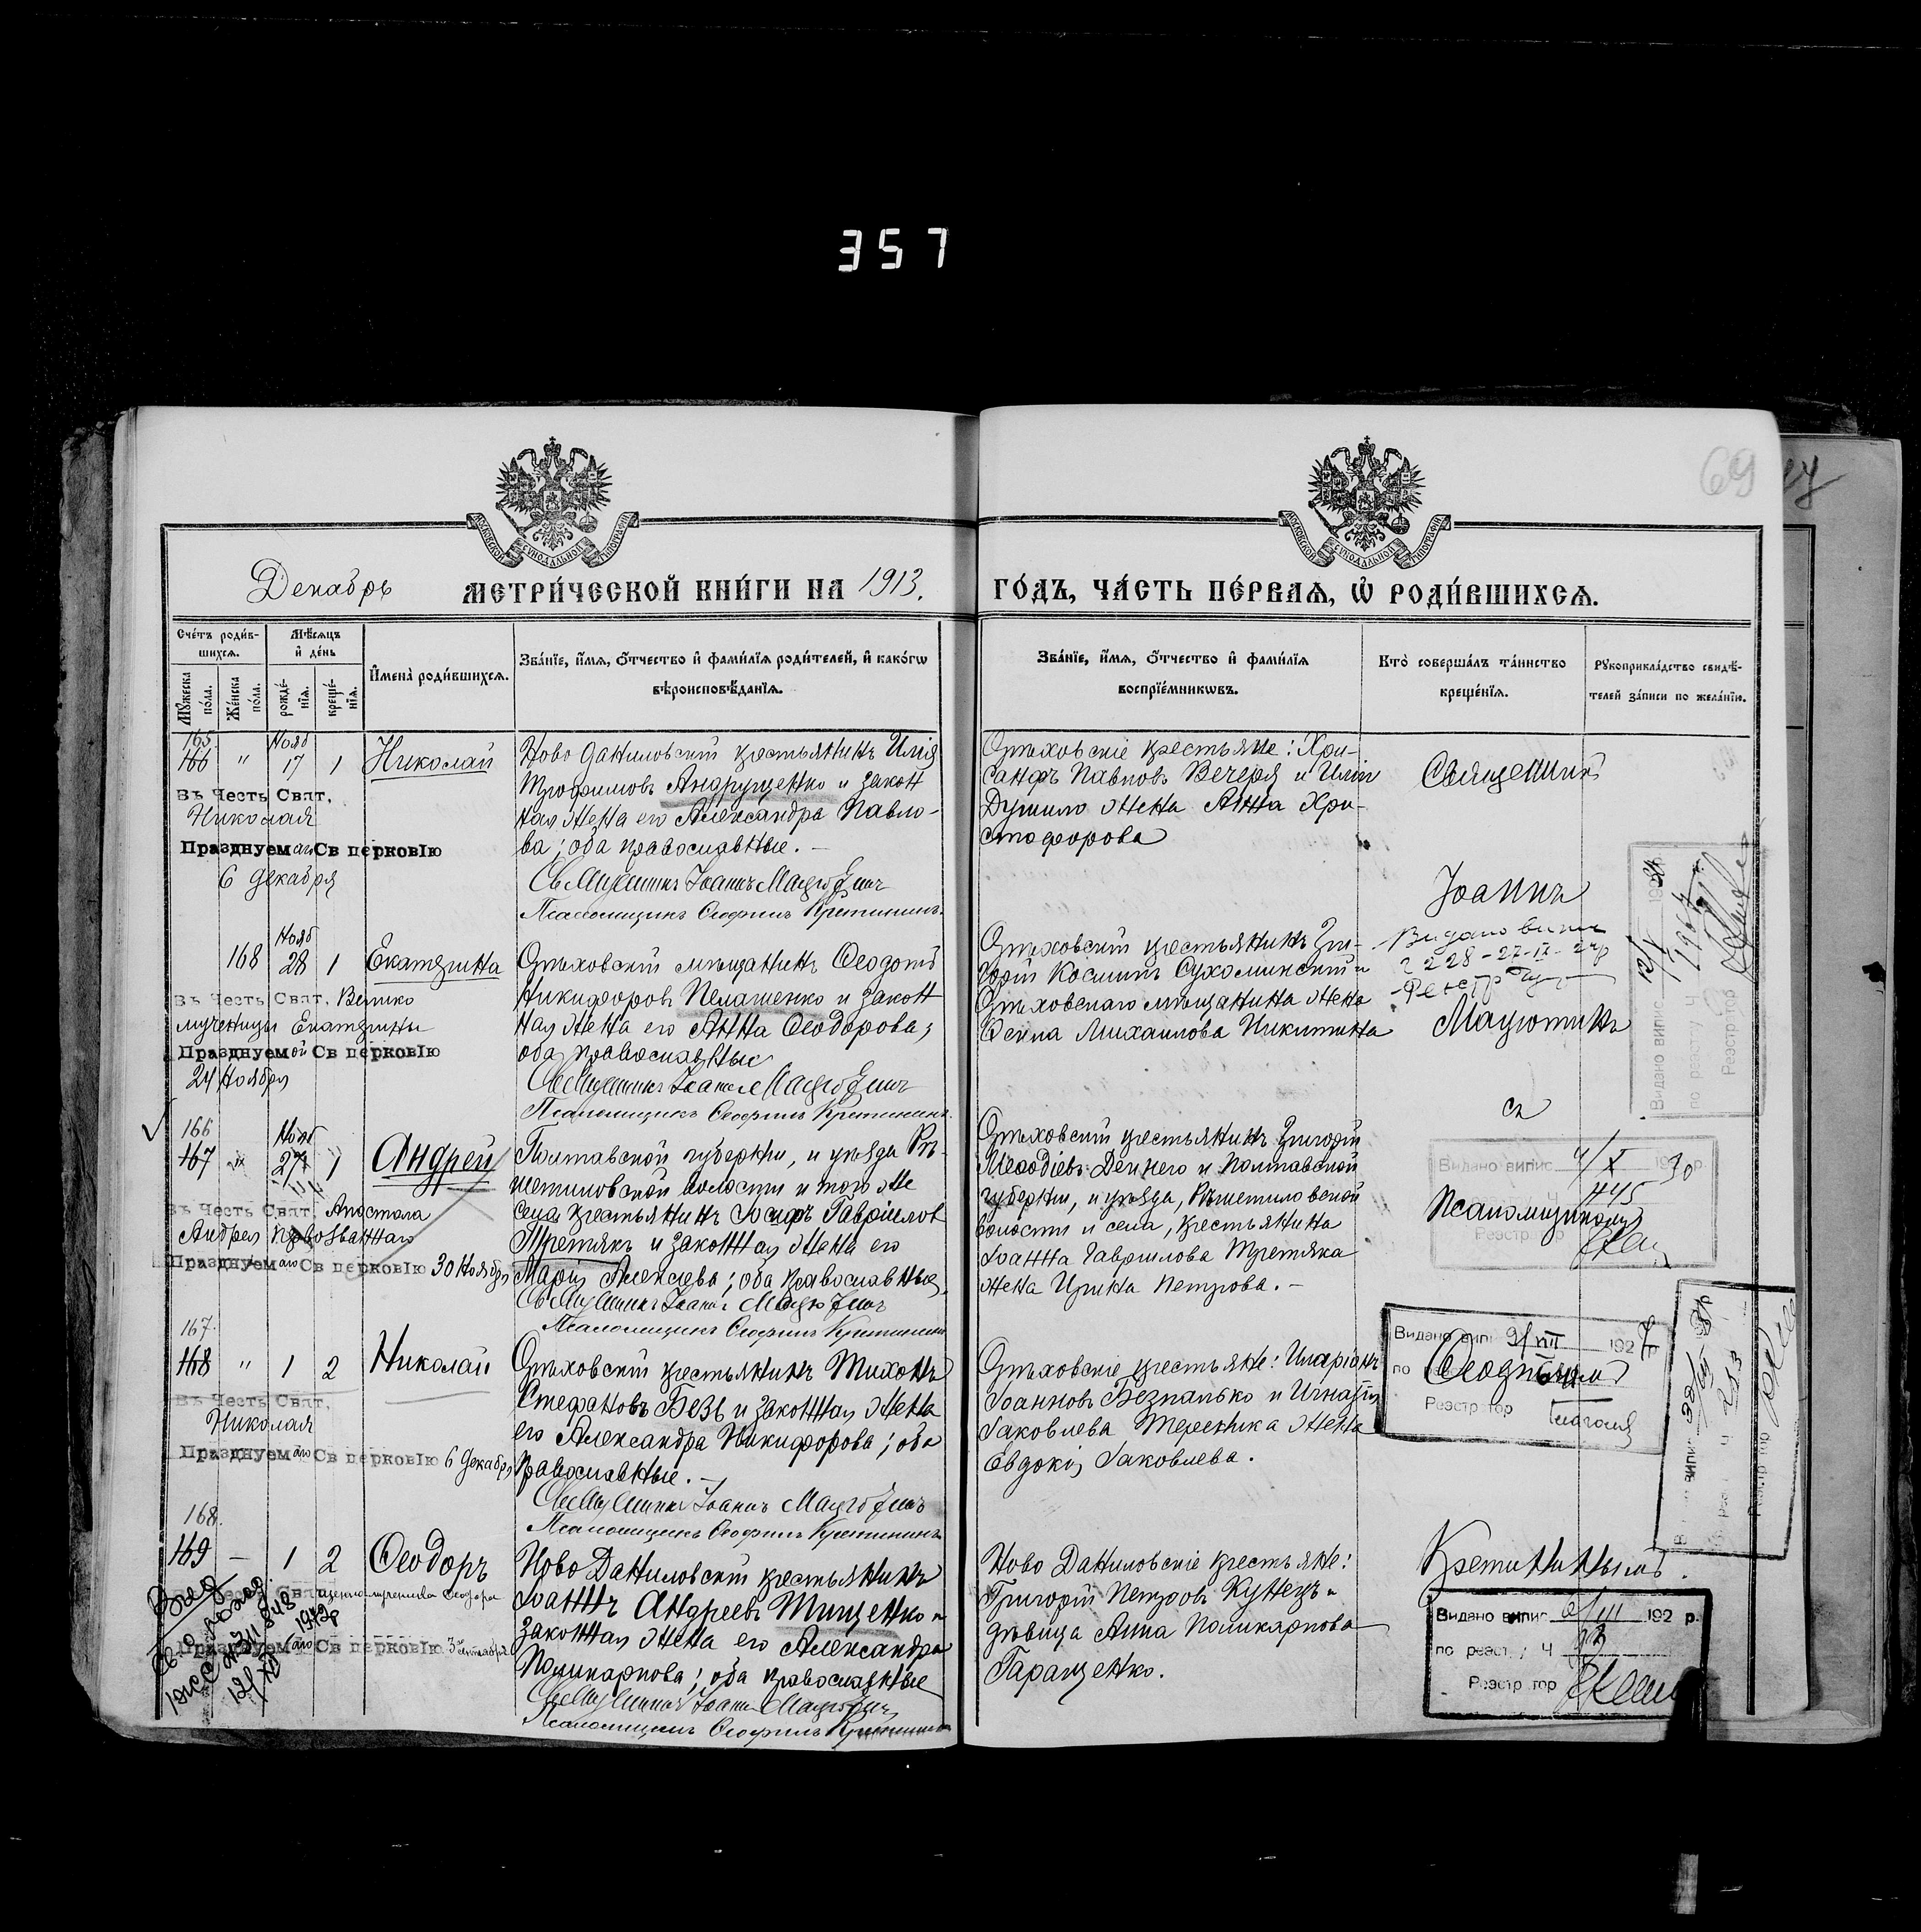 357
69
МОСКОВСКОЙ СѴНОДАЛЬНОЙ ТИПОГРАФІИ
МОСКОВСКОЙ СѴНОДАЛЬНОЙ ТИПОГРАФІИ
Декабрь МЕТРИ́ЧЕСКОЙ КНИ́ГИ НА 1913. ГО́ДЪ, ЧА́СТЬ ПЕ́РВАѦ, Ѡ҆ РОДИ́ВШИХСѦ.
Сче́тъ роди́в-
шихсѧ.
Мꙋ́жеска по́ла.
Же́нска по́ла.
Мѣ́сѧцъ
и҆ де́нь
рожде́-
нїѧ.
креще́-
нїѧ.
И҆мена̀ роди́вшихсѧ.
Зва́нїе, и҆́мѧ, ѻ҆́тчество и҆ фами́лїѧ роди́телей, и҆ како́гѡ
вѣроисповѣ́данїѧ.
Зва́нїе, и҆́мѧ, ѻ҆́тчество и҆ фами́лїѧ
воспрїе́мникѡвъ.
Кто̀ соверша́лъ та́инство
креще́нїѧ.
Рꙋкоприкла́дство свидѣ́-
телей за́писи по жела́нїю.
165
166 " Нояб 17 1 Николай
Въ Честь Свят.
Николая
Празднуемаго Св церковію
6 декабря
Ново Даниловскій крестьянинъ Илія
Трофимовъ Андрущенко и закон
ная жена его Александра Павло-
ва; оба православные. –
Священникъ Іоаннъ
Псаломщикъ Ѳеофилъ Кретининъ.
Орѣховскіе крестьяне: Хри-
санфъ Павловъ Вечеря и Иліи
жена Анна Хри-
стофорова
Священник
Іоаннъ
168 Нояб 28 1 Екатерина
Въ Честь Свят. Велико
мученицы Екатерины
Празднуемой Св церковію
24 Ноября
Орѣховскій мѣщанинъ Ѳеодотъ
Никифоровъ Пелашенко и закон
ная жена его Анна Ѳеодорова;
оба православные
Священникъ Іоаннъ
Псаломщикъ Ѳеофилъ Кретининъ.
Орѣховскій крестьянинъ Гри-
горій Косминъ Сухоминскій и
Орѣховскаго мѣщанина жена
Михаилова Никитина
Видано випис
228-27-
Видано випис
по реестру Ч
Реэстратор
съ
166
167 Нояб 27 1 Андрей
Въ Честь Свят. Апостола
Андрея Первозваннаго
Празднуемаго Св церковію 30 Ноября
Полтавской губерніи, и уѣзда Рѣ-
шетиловской волости и того же
села крестьянинъ Іосифъ Гавріилов
Третякъ и законная жена его
Марія Алексѣева; оба православные.
Священникъ Іоаннъ
Псаломщикъ Ѳеофилъ Кретининъ
Орѣховскій крестьянинъ Григорій
Меѳодіевъ и Полтавской
губерніи, и уѣзда, Рѣшетиловской
волости и села, крестьянина
Іоанна Гавриилова Третяка
жена Ирина Петрова. –
Видано випис 4/X 1930р.
445
Реэстратор
Псаломщикомъ
167.
168 " 1 2 Николай
Въ Честь Свят.
Николая
Празднуемаго Св церковію 6 декабря
Орѣховскій крестьянинъ Тихонъ
Стефановъ Безъ и законная жена
его Александра Никифорова; оба
православные. –
Священникъ Іоаннъ
Псаломщикъ Ѳеофилъ Кретининъ
Орѣховскіе крестьяне: Иларіонъ
Іоанновъ Безпалько и Игнатія
Іаковлева Тереника жена
Евдокія Іаковлева.
Видано випис 192
по
Реэстратор
Ѳеофиломъ
168.
169 — 1 2 Ѳеодоръ
священномученика Ѳеодора
Празднуемаго Св церковію
Ново Даниловскій крестьянинъ
Іоаннъ Андреевъ Тищенко и
законная жена его Александра
Поликарпова; оба православные
Священникъ Іоаннъ
Псаломщикъ Ѳеофилъ Кретининъ
Ново Даниловскіе крестьяне:
Григорій Петровъ Кунецъ и
дѣвица Анна Поликарпова
Гаращенко.
Кретининымъ.
Видано випис 192 р.
по реестру Ч
Реэстратор